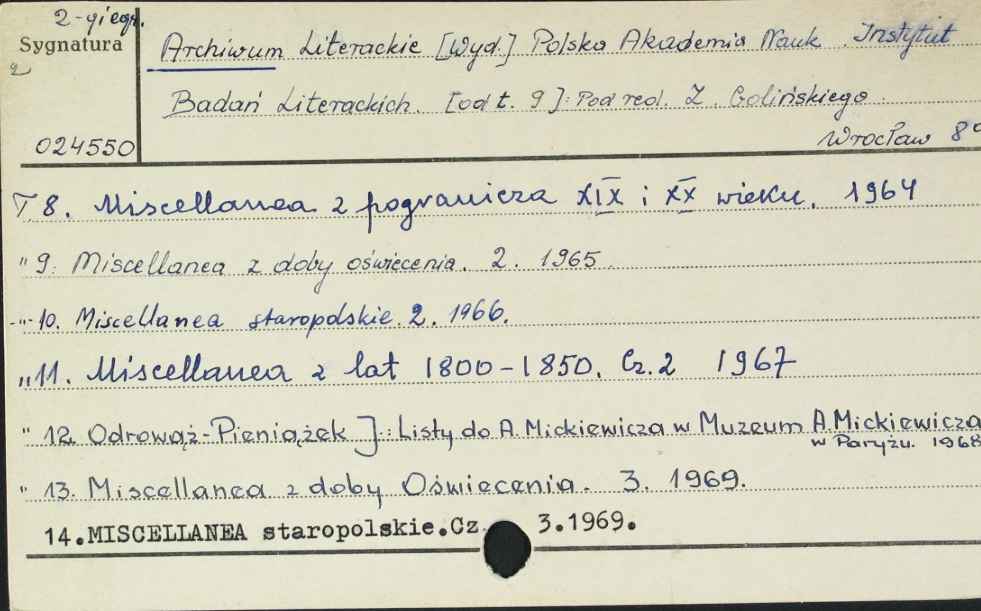 2-gi egz.
Sygnatura
Archiwum Literackie [Wyd.] Polska Akademia Nauk. Instytut
2
Badań Literackich. [od t. 9]: Pod red. Z. Golińskiego.
024550
Wrocław 8°
T 8. Miscellanea z pogranicza XIX i XX wieku. 1964
" 9. Miscellanea z doby oświecenia. 2. 1965.
-"- 10. Miscellanea staropolskie. 2. 1966.
" 11. Miscellanea z lat 1800-1850. Cz. 2 1967
" 12. Odrowąż-Pieniążek J.: Listy do A. Mickiewicza w Muzeum A. Mickiewicza
w Paryżu. 1968
" 13. Miscellanea z doby Oświecenia. 3. 1969.
14. MISCELLANEA staropolskie.Cz 3.1969.